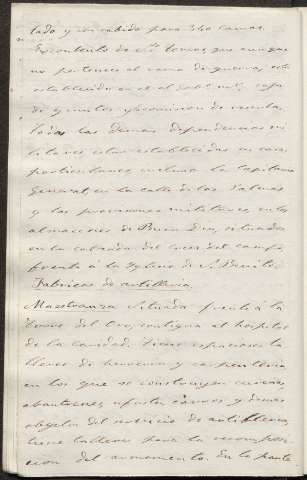 tado y con cabida para 340 camas.
Ex convento de que aunque
no pertenece al ramo de guerra, esta
establecido en el el caja
de quintos y comision de reserva.
Todas las demas dependencias mi
litares estan establecidas en casas
particulares, inclusa la Capitania
General, en la calle de las Palmas
y las provisiones militares, en los
almacenes de Buen situados
en la calzada del cruz del campo,
frente á la Iglesia de S. Benito.
Fabricas de artilleria
Maestranza situada frente á la
Torre del Oro, contigua al hospital
de la caridad. Tiene espaciosos ta
lleres de herreria y carpinteria
en los que se construyen cureñas,
carros y demas
objetos del servicio de artilleria,
tiene talleres para la recompo
sicion del armamento. En la parte